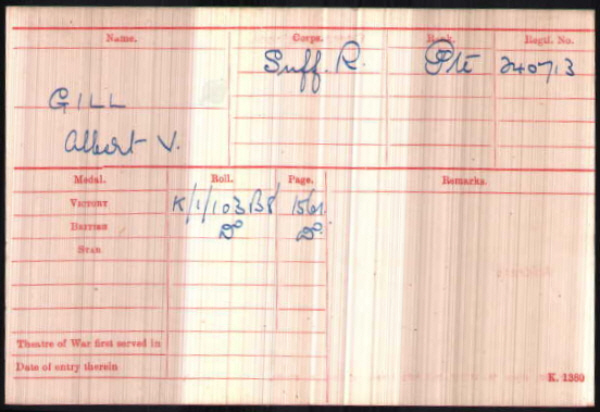 Name. Corps. Rank. Regtl. No.
Suff. R. Pte 240713
GILL
Albert V.
Medal. Roll. Page. Remarks.
VICTORY K/1/103B8 1561.
BRITISH Do Do
STAR
Theatre of War first served in
Date of entry therein
K. 1380